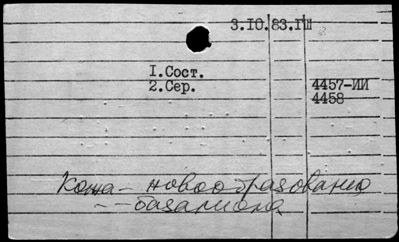 3.10.83.ГШ
1.Сост.
2.Сер. 4457-ИИ
4458
Кожа – новообразования
– – базалиома